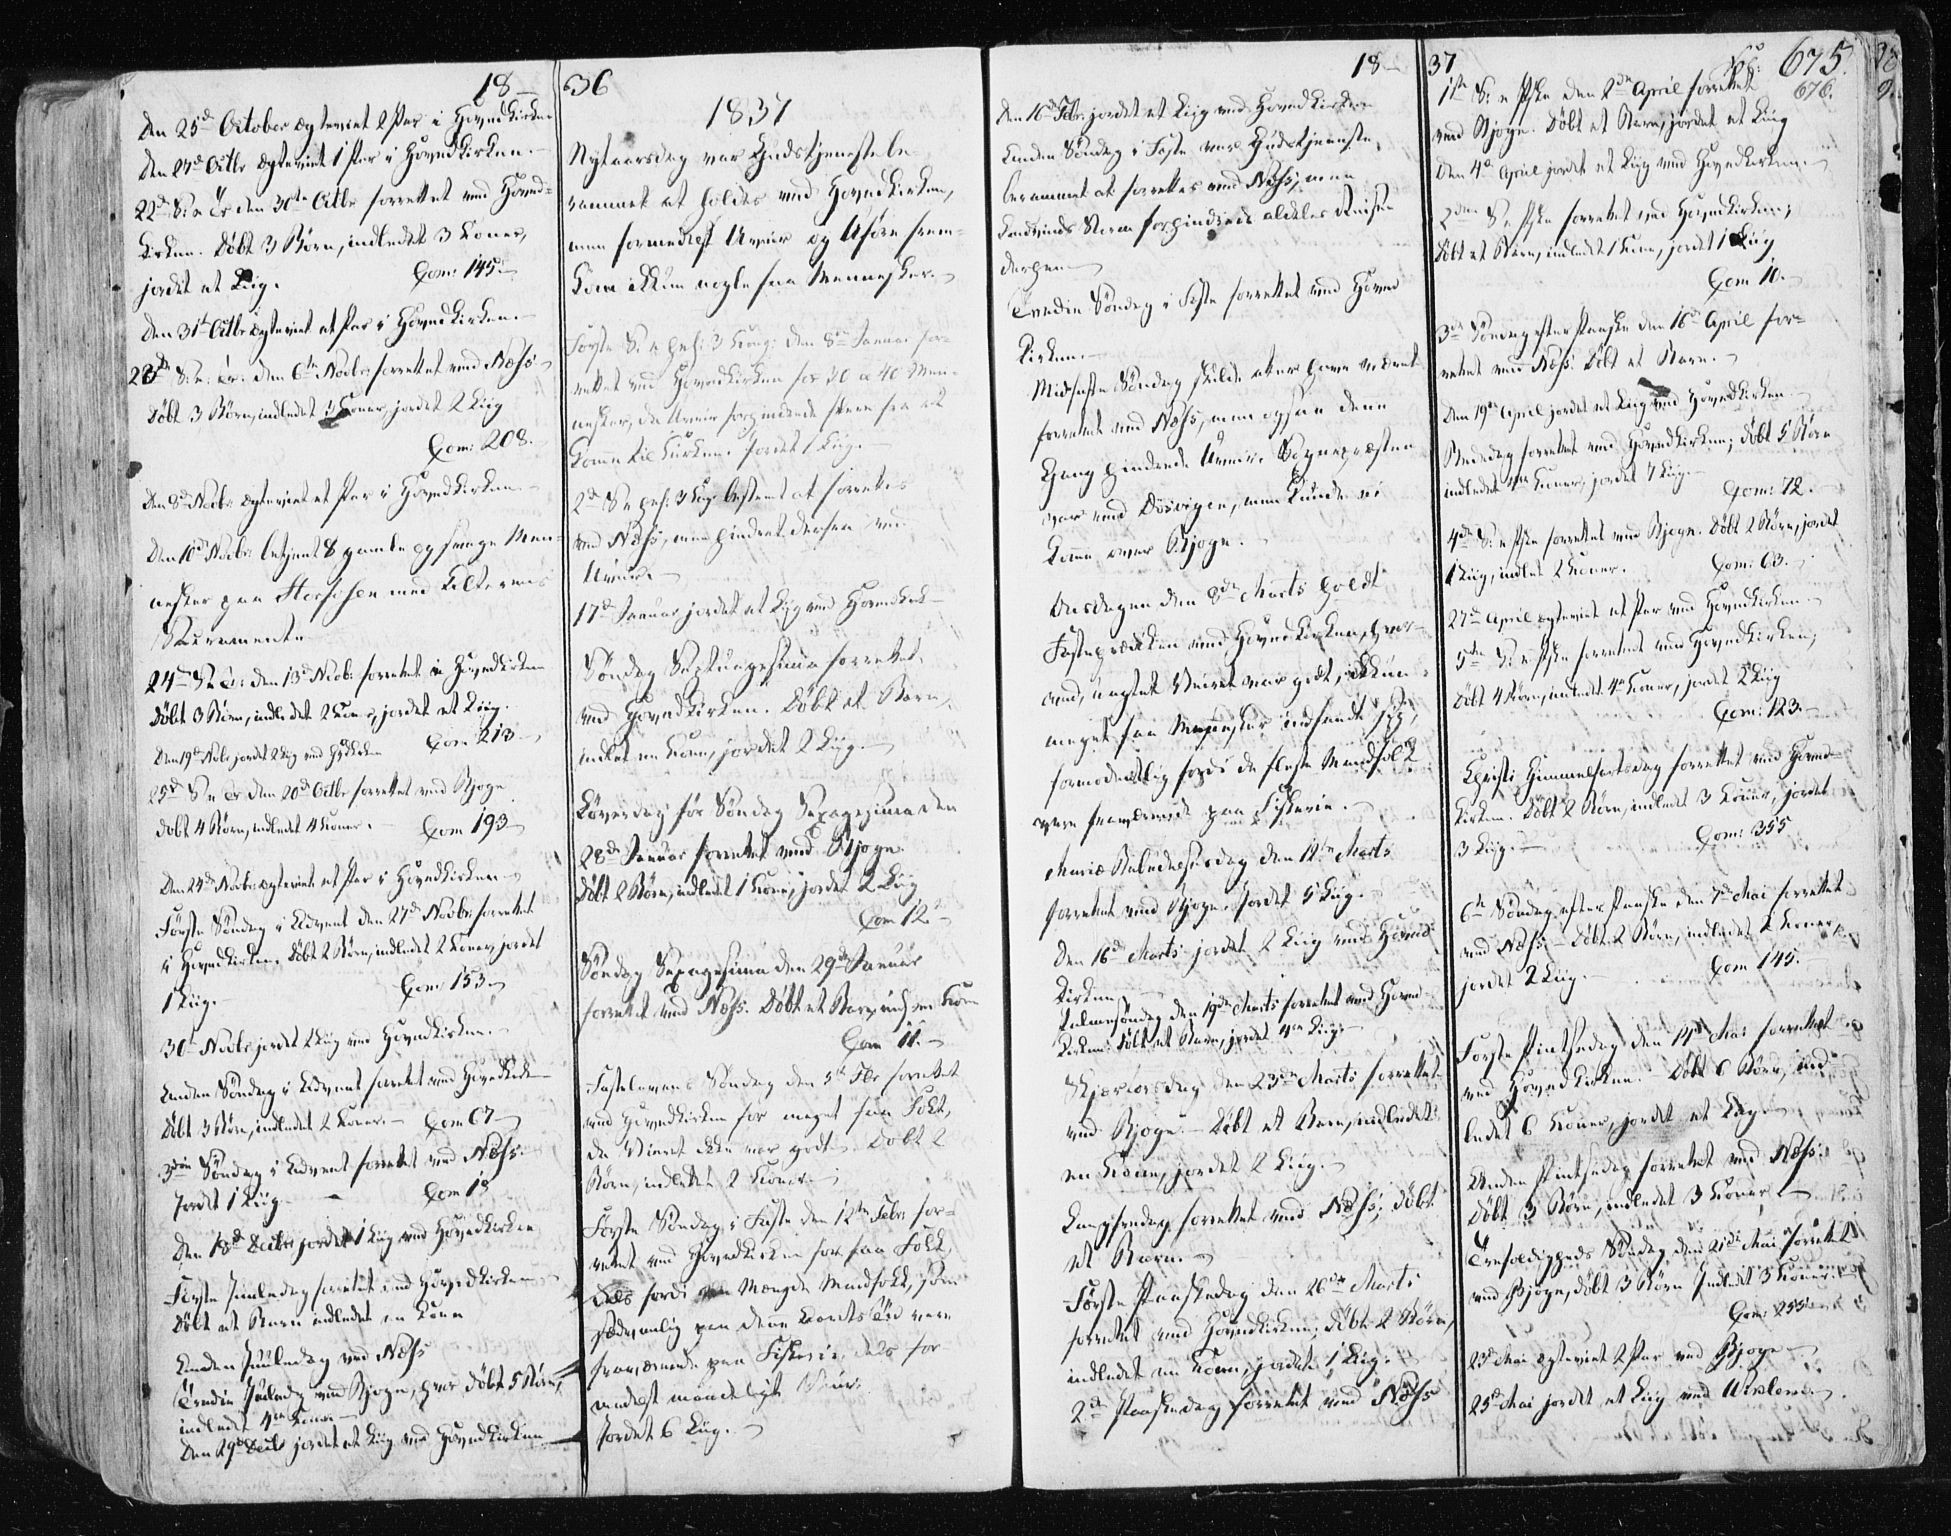 18-36
Den 25d October egteviet 2 Par i Hovedkirken
Den 27d Octbr egteviet 1 Par i Hovedkirken.
22d S: e Tr den 30te Octbr forrettet ved Hoved-
kirken. Døbt 3 Børn, indledet 3 Koner,
jordet et Liig. Com: 145.
Den 31t Octbr egteviet et Par i Hovedkirken.
23d S: e: Tr: den 6te Novbr forrettet ved Næss
Døbt 3 Børn, indledet 3 Koner, jordet 2 Liig
Com: 208.
Den 8d Novbr egteviet et Par i Hovedkirken.
Den 10d Novbr betjent 8 gamle og svage Men-
nesker paa Storfosen med Alterens
Sacramente
24de S e Tr: den 13d Novbr forrettet i Hovedkirken
Døbt 3 Børn, indledet 2 Koner, jordet et Liig.
Com 213
Den 19d Novbr jordet 2 Liig ved Hvdkirken
25d S e Tr den 20d Octbr forrettet ved Bjogn
Døbt 4 Børn, indledet 4 Koner. Com 193
Den 24de Novbr egteviet et Par i Hovedkirken
Første Søndag i Advent den 27d Novbr forrettet
i Hovedkirken. Døbt 2 Børn, indledet 2 Koner, jordet
1 Liig. Com: 153
30te Novbr jordet 2 Liig ved Hovedkirken.
Anden Søndag i Advent forrettet ved Hovedkirken
Døbt 3 Børn, indledet 2 Koner. Com 67
3die Søndag i Advent forrettet ved Næss.
Jordet 1 Liig. Com 18
Den 18d Decbr jordet 1 Liig ved Hovedkirken
Første Juuledag forrettet ved Hovedkirken
Døbt et Barn indledet en Kone
Anden Juuledag ved Næss
Tredie Juuledag ved Bjogn, hvor døbt 5 Børn,
indledt 4re Koner
Den 29d Decbr jordet et Liig ved Hovedkirken
1837
Nytaarsdag var Gudstjeneste be-
rammet at holdes ved Hovedkirken,
men formedelst Uveir og Uføre frem-
kom ikkun nogle faa Mennesker.
Første S: e Hel: 3 Kong: den 8de Januar for-
rettet ved Hovedkirken for 30 a 40 Men-
nesker, da Uveir forhindrede flere fra at
komme til Kirken. Jordet 1 Liig.
2d S e Hel: 3 Kong: bestemt at forrettes
ved Næss, men hindret derfra ved
Uveir.
17d Januar jordet et Liig ved Hovedkirk
Søndag Septuagesima forrettet
ved Hovedkirken. Døbt et Barn,
indlet en Kone, jordet 2 Liig.
Løverdag før Søndag Sexagesima den
28de Januar forrettet ved Bjogn.
Døbt 2 Børn, indledt 1 Kone, jordet 2 Liig
Com 12
Søndag Sexagesima den 29de Januar
forrettet ved Næss. Døbt et Barn, indl: en Kone
Com 11.
Fastelavens Søndag den 5t Fbr forrettet
ved Hovedkirken for meget faa Folk,
da Veiret ikke var godt. Døbt 2
Børn, indledet 2 Koner.
Første Søndag i Faste den 12te Febr: for-
rettet ved Hovedkirken for faa Folk,
dels fordi en Mængde Mandfolk, som
sædvanlig paa denne Aarets Tid vare
fraværende paa Fiskerie, dels for-
medelst maadeligt Veir.
Jordet 6 Liig.
18-37
Den 16d Febr: jordet et Liig ved Hovedkirken
Anden Søndag i Faste var Gudstjeneste
berammet at forrettes ved Næss, men
Landvinds Storm forhindrede aldeles Reisen
derhen
Tredie Søndag i Faste forrettet ved Hoved
kirken.
Midfaste Søndag skulde atter have været
forrettet ved Næss, men ogsaa denne
Gang hindrede Uveir. Sognepræsten
var ved Døsvigen, men kunde ei
komme over Bjogn.
Onsdagen den 8de Marts holdt
Fasteprædiken ved Hovedkirken, hvor-
ved, uagtet Veiret var godt, ikkun
meget faa Mennesker indfandt sig,
formodentlig fordi de fleste Mandfolk
vare fraværende paa Fiskerie.
Mariæ Bebudelsesdag den 12te Marts
forrettet ved Bjogn. Jordet 5 Liig.
Den 16d Marts jordet 2 Liig ved Hoved-
kirken
Palmesøndag den 19de Marts forrettet ved Hoved-
kirken: døbt et Barn, jordet 4re Liig
Skjærtorsdag den 23de Marts forrettet
ved Bjogn. Døbt et Barn, indledet
en Kone, jordet 2 Liig.
Langfredag forrettet ved Næss; døbt
et Barn.
Første Paaskedag den 26de Marts
forrettet ved Hovedkirken; døbt 2 Børn,
indledet en Kone, jordet 1 Liig.
2d Paaskedag forrettet ved Næss
675.
676.
1ste S: e Pske den 2den April forrettet
ved Bjogn. Døbt et Barn, jordet et Liig
Den 4de April jordet et Liig ved Hovedkirken.
2den S e Pske forrettet ved Hovedkirken;
døbt et Barn, indledet 1 Kone, jordet 1 Liig
Com 10.
3de Søndag efter Paaske den 16de April for-
rettet ved Næss. Døbt et Barn.
Den 19de April jordet et Liig ved Hovedkirken.
Bededag forrettet ved Hovedkirken; døbt 5 Børn
indledet Koner, jordet 7 Liig
Com: 72.
4de S: e Pske forrettet ved Bjogn. Døbt 2 Børn, jordet
1 Liig, indlet 2 Koner. Com: 63.
27de April egteviet et Par ved Hovedkirken.
5te S: e Pske forrettet ved Hovedkirken;
døbt 4 Børn, indledet 4re Koner, jordet 2 Liig
Com: 123.
Christi Himmelfartsdag forrettet ved Hoved-
kirken. Døbt 2 Børn, indledet 3 Koner, jordet
3 Liig. Com: 355
6te Søndag efter Paaske den 7de Mai forrettet
ved Næss. Døbt 2 Børn, indledet 2 Koner,
jordet 2 Liig. Com 145.
Første Pintsedag den 14d Mai forrettet
ved Hovedkirken. Døbt 6 Børn, ind
ledet 6 Koner, jordet et Liig.
Anden Pintsedag forrettet ved Næss.
Døbt 3 Børn, indledet 3 Koner.
Trefoldigheds Søndag den 21de Mai forrettet
ved Bjogn, døbt 3 Børn Indledt 3 Koner.
Com: 255
23d Mai egteviet 2 Par ved Bjogn
25d Mai jordet et Liig ved